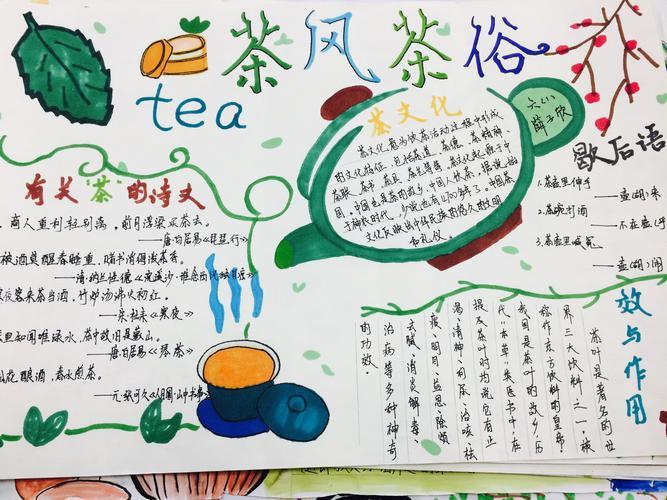 茶风茶俗
tea
六(1)
薛子欣
茶文化
茶文化意为饮茶活动过程中形成
的文化特征,包括茶道、茶德、茶精神、
茶联、茶书、茶具、茶画等等。茶文化起源于中
国。中国也是茶的故乡,中国人饮茶,据说始
于神农时代,少说也有4700多年了。中国茶
文化反映出中华民族的悠久的文明
和礼仪。
歇后语
1.茶壶里伸手
——壶(胡)来
2.茶碗打酒
——不在壶(乎)
3.茶壶里喊冤
——壶(胡)闹
有关“茶”的诗文
商人重利轻别离,前月浮梁买茶去。
——唐·白居易《琵琶行》
被酒莫醒春睡重,赌书消得泼茶香。
——清·纳兰性德《浣溪沙·谁念西风独自凉》
寒夜客来茶当酒,竹炉汤沸火初红。
——宋·杜耒《寒夜》
里知闻唯渌水,茶中故旧是蒙山。
——唐·白居易《琴茶》
花酿酒,春水煎茶。
——元·张可久《人月圆·山中书事》
效与作用
茶叶是著名的世
界三大饮料之一,被
俗作“东方饮料的皇帝”
我国是茶叶的故乡,历
代“本草”类医书中在
提及茶叶时均说它有止
渴、清神、利尿、治咳、祛
痰、明目、益思、除烦
去腻、消炎解毒、
治病等多种神奇
的功效。